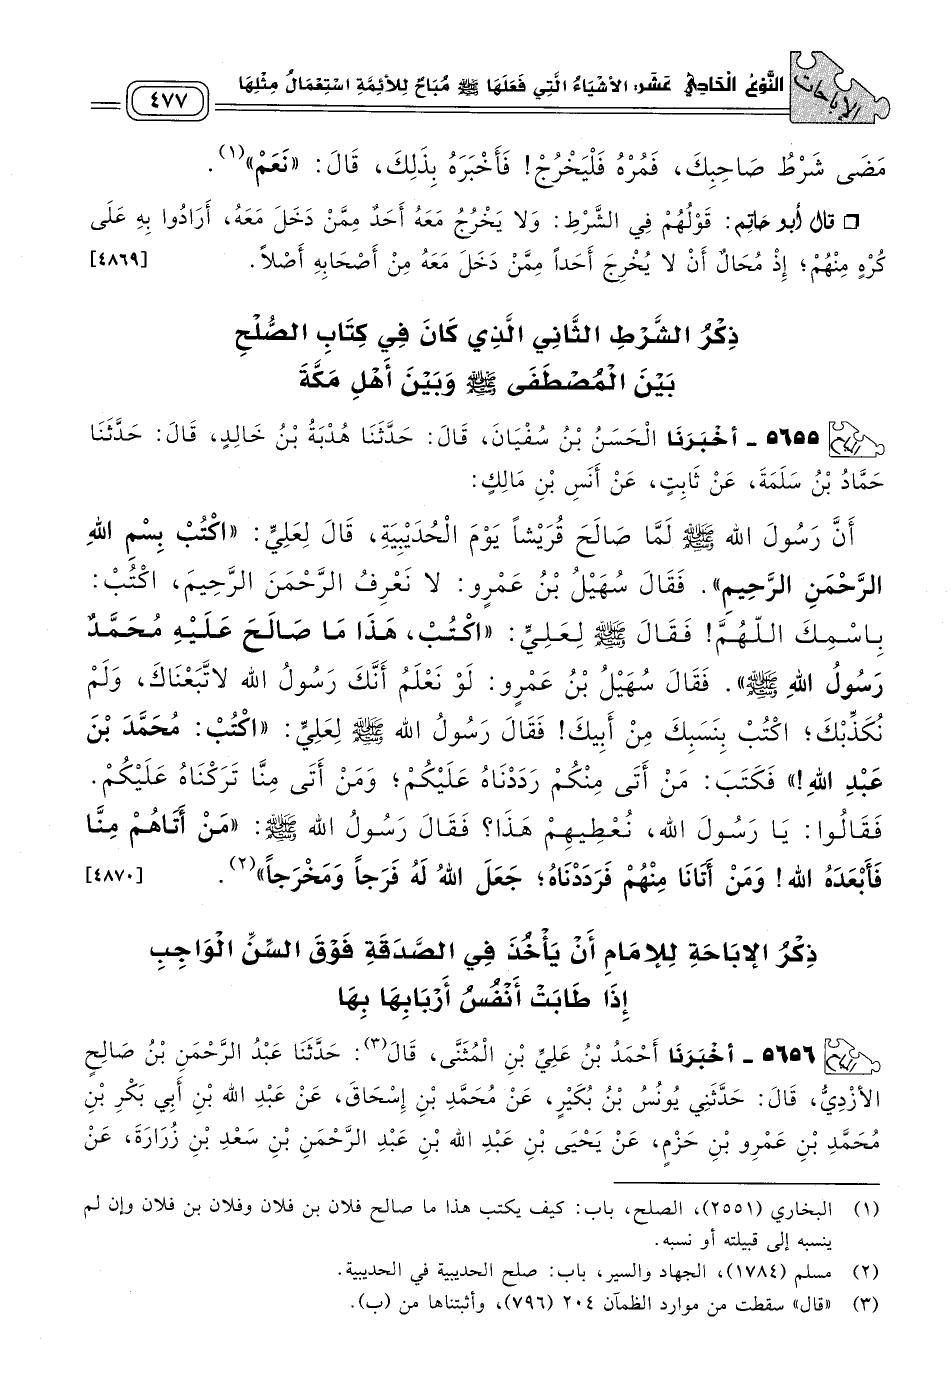 الإباحات
النَّوْعُ الْحَادِي عَشَرَ: الأَشْيَاءُ الَّتِي فَعَلَهَا ﷺ مُبَاحٌ لِلأَئِمَّةِ اسْتِعْمَالُ مِثْلِهَا
٤٧٧
مَضَى شَرْطُ صَاحِبِكَ، فَمُرْهُ فَلْيَخْرُجْ! فَأَخْبَرَهُ بِذَلِكَ، قَالَ: «نَعَمْ»(١).
❒ قال أبو حاتِم: قَوْلُهُمْ فِي الشَّرْطِ: وَلا يَخْرُجُ مَعَهُ أَحَدٌ مِمَّنْ دَخَلَ مَعَهُ، أَرَادُوا بِهِ عَلَى
كُرْهٍ مِنْهُمْ؛ إِذْ مُحَالٌ أَنْ لا يُخْرِجَ أَحَداً مِمَّنْ دَخَلَ مَعَهُ مِنْ أَصْحَابِهِ أَصْلاً. [٤٨٦٩]
ذِكْرُ الشَّرْطِ الثَّانِي الَّذِي كَانَ فِي كِتَابِ الصُّلْحِ
بَيْنَ الْمُصْطَفَى ﷺ وَبَيْنَ أَهْلِ مَكَّةَ
٥٦٥٥ - أخْبَرَنَا الْحَسَنُ بْنُ سُفْيَانَ، قَالَ: حَدَّثَنَا هُدْبَةُ بْنُ خَالِدٍ، قَالَ: حَدَّثَنَا
حَمَّادُ بْنُ سَلَمَةَ، عَنْ ثَابِتٍ، عَنْ أَنَسِ بْنِ مَالِكٍ:
أَنَّ رَسُولَ الله ﷺ لَمَّا صَالَحَ قُرَيْشاً يَوْمَ الْحُدَيْبِيَةِ، قَالَ لِعَلِيٍّ: «اكْتُبْ بِسْمِ اللهِ
الرَّحْمَنِ الرَّحِيمِ». فَقَالَ سُهَيْلُ بْنُ عَمْرٍو: لا نَعْرِفُ الرَّحْمَنَ الرَّحِيمَ، اكْتُبْ:
بِاسْمِكَ اللَّهُمَّ! فَقَالَ ﷺ لِعَلِيٍّ: «اكْتُبْ، هَذَا مَا صَالَحَ عَلَيْهِ مُحَمَّدٌ
رَسُولُ اللهِ ﷺ». فَقَالَ سُهَيْلُ بْنُ عَمْرٍو: لَوْ نَعْلَمُ أَنَّكَ رَسُولُ الله لاتَّبَعْنَاكَ، وَلَمْ
نُكَذِّبْكَ؛ اكْتُبْ بِنَسَبِكَ مِنْ أَبِيكَ! فَقَالَ رَسُولُ الله ﷺ لِعَلِيٍّ: «اكْتُبْ: مُحَمَّدَ بْنَ
عَبْدِ اللهِ!» فَكَتَبَ: مَنْ أَتَى مِنْكُمْ رَدَدْنَاهُ عَلَيْكُمْ؛ وَمَنْ أَتَى مِنَّا تَرَكْنَاهُ عَلَيْكُمْ.
فَقَالُوا: يَا رَسُولَ الله، نُعْطِيهِمْ هَذَا؟ فَقَالَ رَسُولُ الله ﷺ: «مَنْ أَتَاهُمْ مِنَّا
فَأَبْعَدَهُ الله! وَمَنْ أَتَانَا مِنْهُمْ فَرَدَدْنَاهُ؛ جَعَلَ اللهُ لَهُ فَرَجاً وَمَخْرَجاً»(٢). [٤٨٧٠]
ذِكْرُ الإبَاحَةِ لِلإمَامِ أَنْ يَأْخُذَ فِي الصَّدَقَةِ فَوْقَ السِّنِّ الْوَاجِبِ
إِذَا طَابَتْ أَنْفُسُ أَرْبَابِهَا بِهَا
٥٦٥٦ - أخْبَرَنَا أَحْمَدُ بْنُ عَلِيِّ بْنِ الْمُثَنَّى، قَالَ(٣): حَدَّثَنَا عَبْدُ الرَّحْمَنِ بْنُ صَالِحٍ
الأَزْدِيُّ، قَالَ: حَدَّثَنِي يُونُسُ بْنُ بُكَيْرٍ، عَنْ مُحَمَّدِ بْنِ إِسْحَاقَ، عَنْ عَبْدِ الله بْنِ أَبِي بَكْرِ بْنِ
مُحَمَّدِ بْنِ عَمْرِو بْنِ حَزْمٍ، عَنْ يَحْيَى بْنِ عَبْدِ الله بْنِ عَبْدِ الرَّحْمَنِ بْنِ سَعْدِ بْنِ زُرَارَةَ، عَنْ
(١) البخاري (٢٥٥١)، الصلح، باب: كيف يكتب هذا ما صالح فلان بن فلان وفلان بن فلان وإن لم
ينسبه إلى قبيلته أو نسبه.
(٢) مسلم (١٧٨٤)، الجهاد والسير، باب: صلح الحديبية في الحديبية.
(٣) «قال» سقطت من موارد الظمآن ٢٠٤ (٧٩٦)، وأثبتناها من (ب).